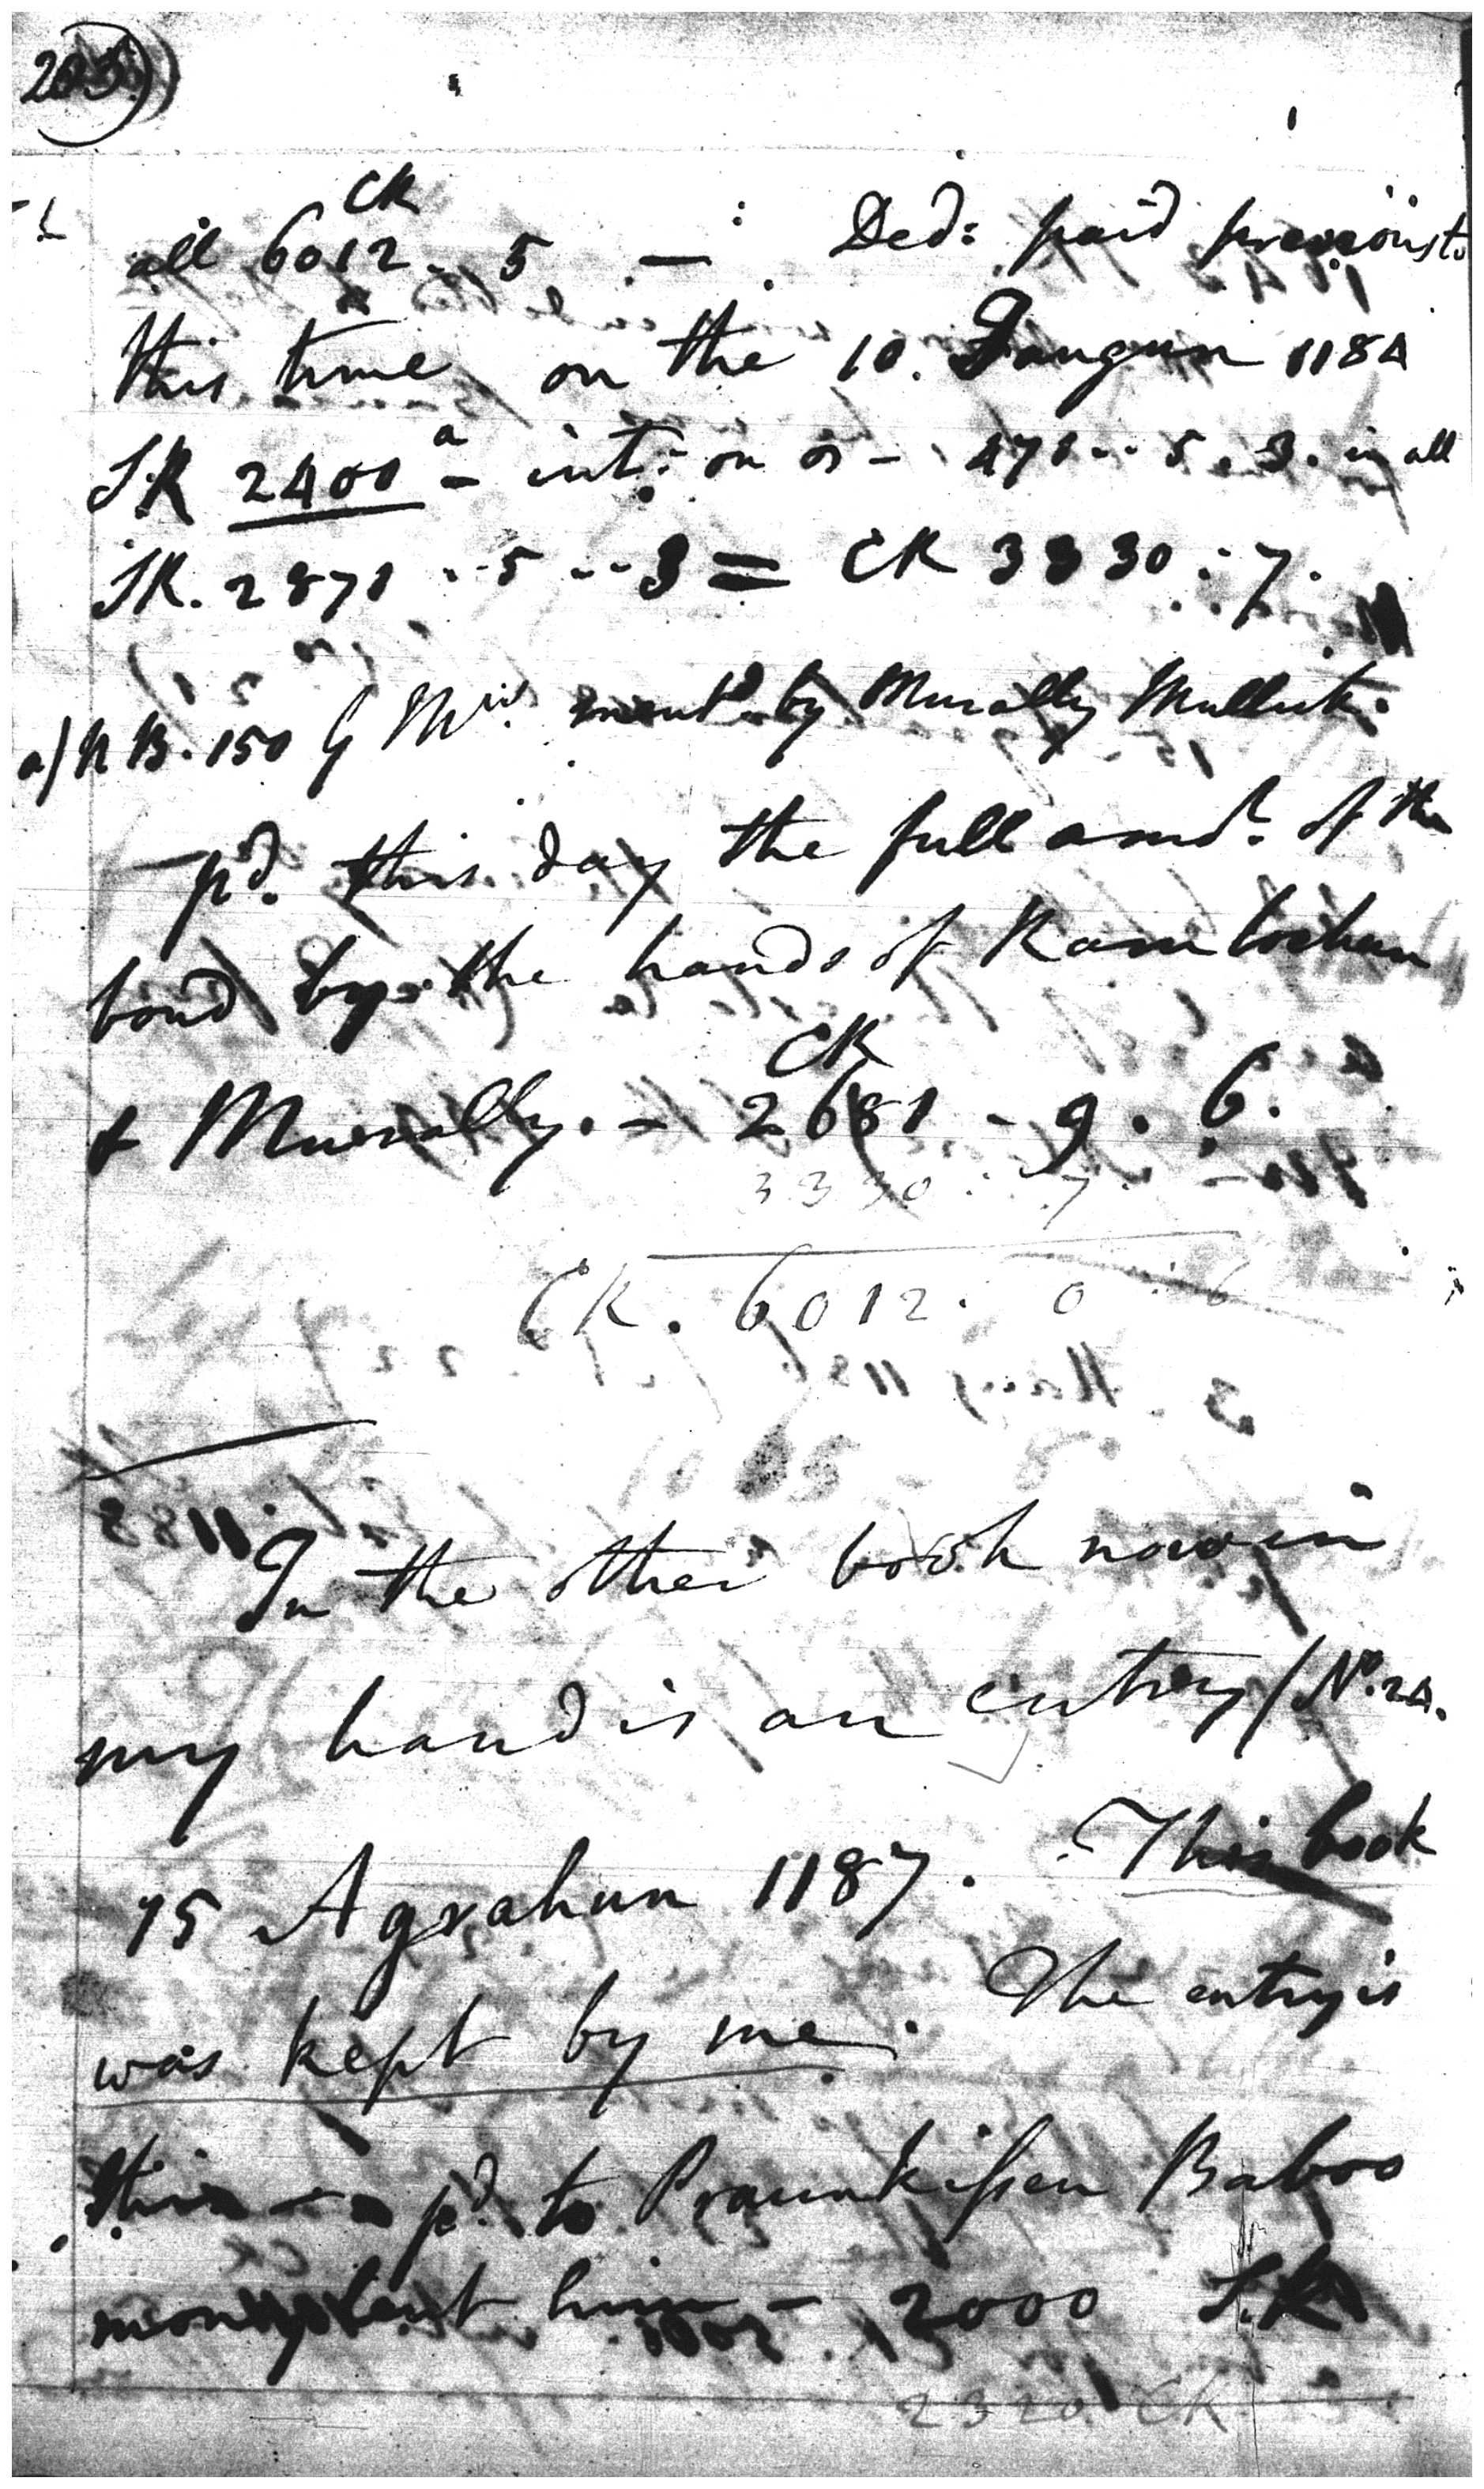 CR
all 6012 .. 5 — : Ded: paid previous to
this time on the 10. Faugun 1184
S.R 2400 a - int: on Do - 471 .. 5 . 3 . in all
SR. 2871 .. 5 .. 3 = CR 3330 : 7 .
a) N B. 150 G Mrs. ment.d by Murally Mulluk.
pd. this day the full amo.t of the
bond by the hands of Ram lochun
CR
& Muerally. - 2681 - 9 . 6 .
3330 : 7 .
CR. 6012 . 0 : 6
In the other book now in
my hand is an entry (No. 24.
15 Agrahun 1187. This book
was kept by me. The entry is
this — pd. to Praunkissen Baboo
money lent him - 2000 S.R
2320 CR